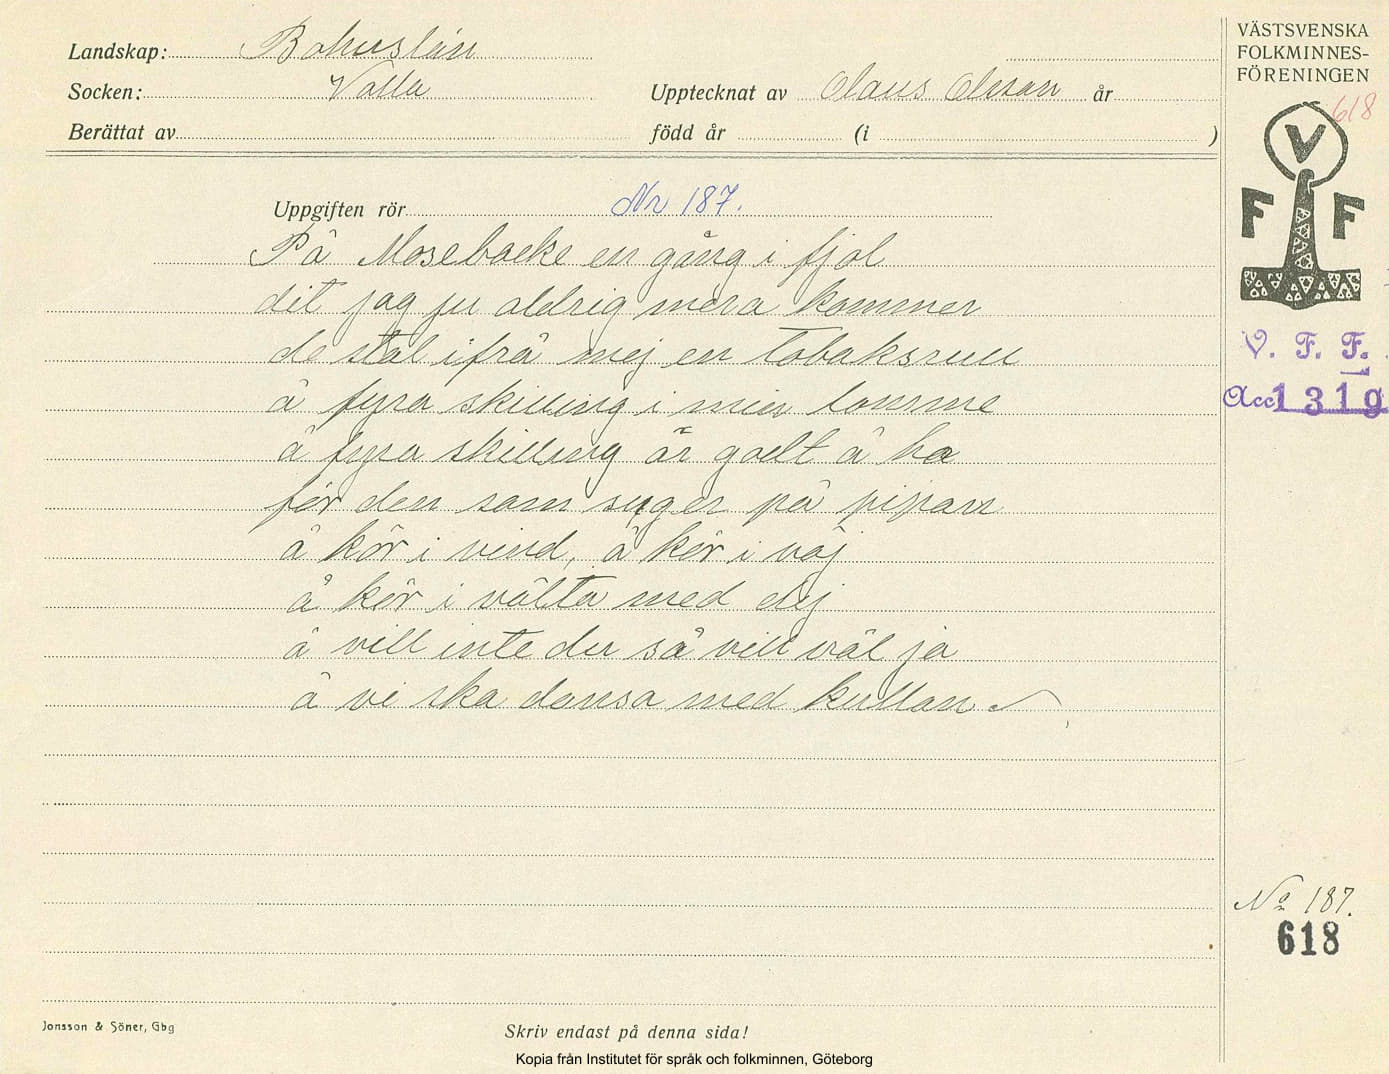 Landskap: Bohuslän
Socken: Valla
Upptecknat av Claus Olsson år
Berättat av
född år (i )
Uppgiften rör Nr 187.
På Mosebacke en gång i fjol
dit jag ju aldrig mera kommer
de stal ifrå mej en tobaksrull
å fyra skilling i min lomme
å fyra skilling är godt å ha
för den som suger på pipan
å kör i vind, å kör i väj
å kör i välta med dej
å vill inte du så vill väl ja
å vi ska dansa med kullan
VÄSTSVENSKA
FOLKMINNES-
FÖRENINGEN
618
V
F F
V. F. F.
Acc 1319
No 187.
618
Jonsson & Söner, Gbg
Skriv endast på denna sida!
Kopia från Institutet för språk och folkminnen, Göteborg